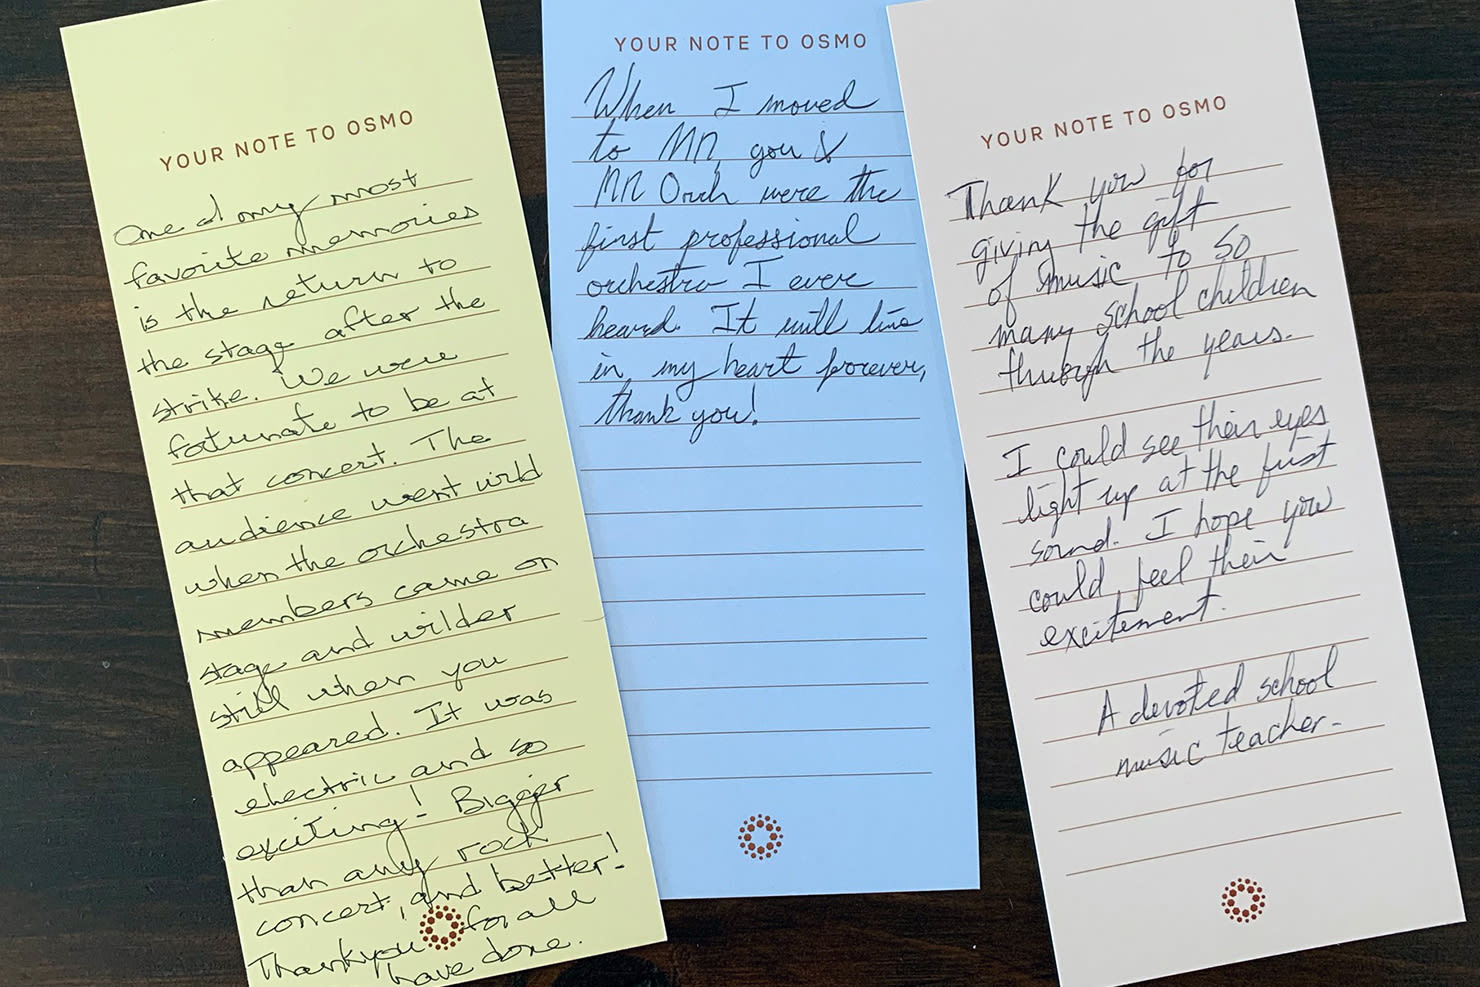 YOUR NOTE TO OSMO
One of my most
favorite memories
is the return to
the stage after the
strike. We were
fortunate to be at
that concert. The
audience went wild
when the orchestra
members came on
stage and wilder
still when you
appeared. It was
electric and so
exciting! Bigger
than any rock
concert, and better!
Thank you for all
have done.
YOUR NOTE TO OSMO
When I moved
to MN, you &
MN Orch were the
first professional
orchestra I ever
heard. It will live
in my heart forever,
thank you!
YOUR NOTE TO OSMO
Thank you for
giving the gift
of music to so
many school children
through the years.
I could see their eyes
light up at the first
sound. I hope you
could feel their
excitement.
A devoted school
music teacher-